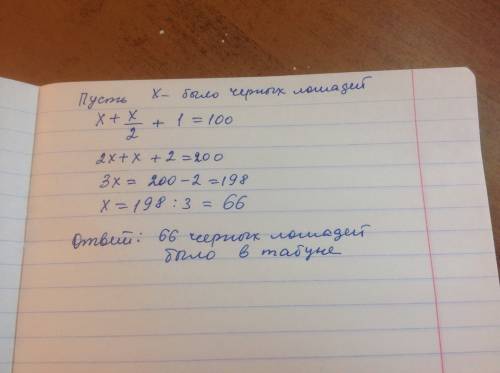 Пусть x – было черных лошадей
x + x/2 + 1 = 100
2x + x + 2 = 200
3x = 200 - 2 = 198
x = 198 : 3 = 66
Ответ: 66 черных лошадей
было в табуне